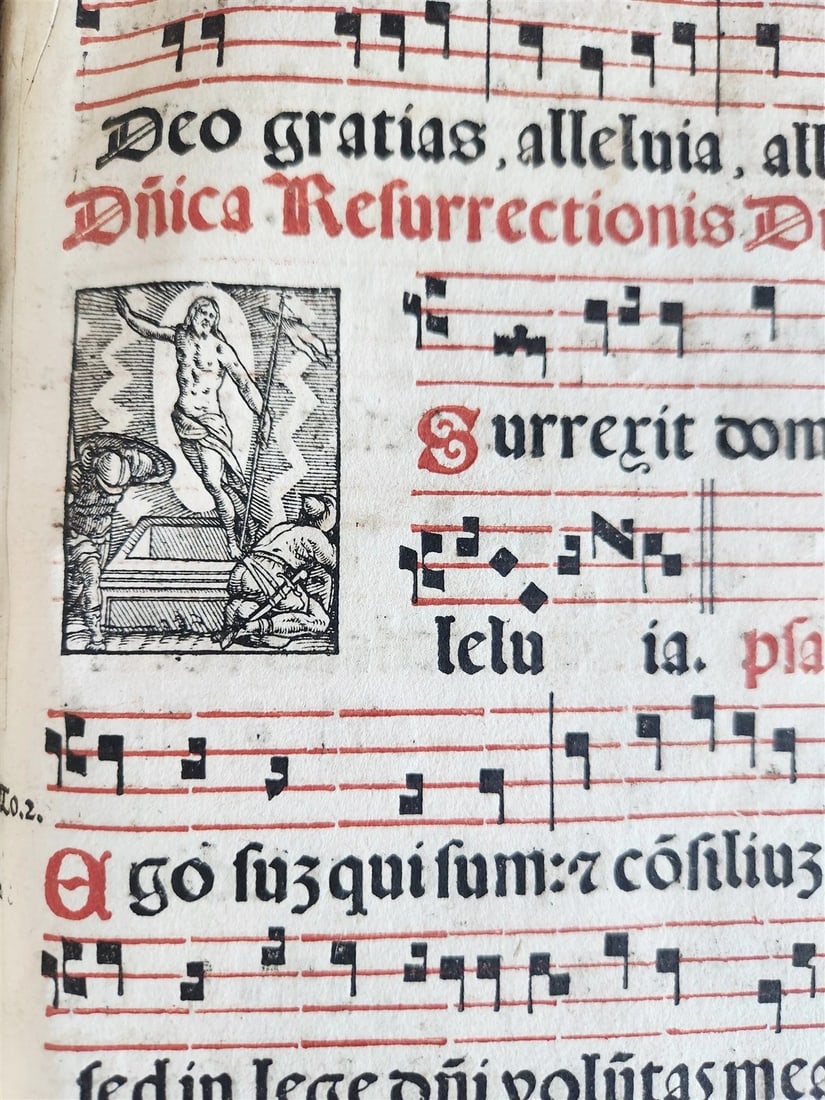 Deo gratias, alleluia, all
Dñica Reſurrectionis
Surrexit dom
lelu ia. pſa
To.2.
Ego ſuʒ qui ſum: ⁊ cõſiliuʒ
ſed in lege dñi volũtas mea